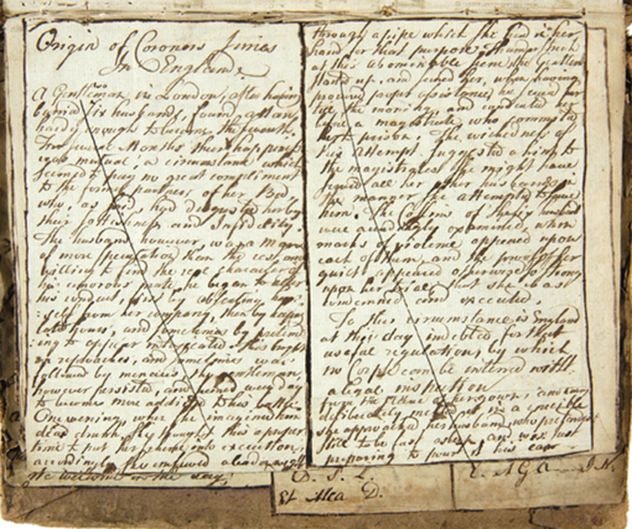 Origin of Coroners Juries
In England;
A Gentlewoman in London, after having
buried six husbands, found a man
hardy enough to become the seventh,
For several Months their happiness
was mutual, a circumstance which
seemed to pay no great compliment
to the former partners of her Bed,
who, as said had disgusted her by
their sottishness and Infidelity
The husband however, was a man
of more speculation than the rest, and
willing to find the real character of
his amorous mate, he began to alter
his conduct, first by absenting him
self from her company, then by keeping
late hours, and sometimes by pretend
ing to appear intoxicated. This brought
on reproaches, and sometimes was
followed by menaces, the gentleman,
however persisted, and seemed every day
to become more addicted to his bottle
One evening, when she imagined him
dead drunk, she thought this a proper
time to put her scheme into execution,
accordingly she unsewed a leaden weight
through a pipe which she had in her
hand for that purpose,
at this abominable scene the Gentleman
stand up, and seized her, when having
procured proper assistance, he
till the morning, and conducted her
before a magistrate, who committed
her to prison. The wickedness of
this attempt, suggested a hint to
the magistrates she might have
served all her other husbands in
the manner she attempted to serve
him. The of these husband
were accordingly examined, when
marks of violence appeared upon
each of them, and the proof of her
guilt appeared otherwise so strong
upon her trial, that she was
condemned and executed.
To this circumstance is England
at this day indebted for that
useful regulation, by which
no Corpse can be interred without
a legal inspection
from the sleeve of her gown, and having
deliberately melted it in a
she approached her husband, who pretended
still to be fast asleep, and was just
preparing to pour it in his ear
D. S. L.
St Alca D.